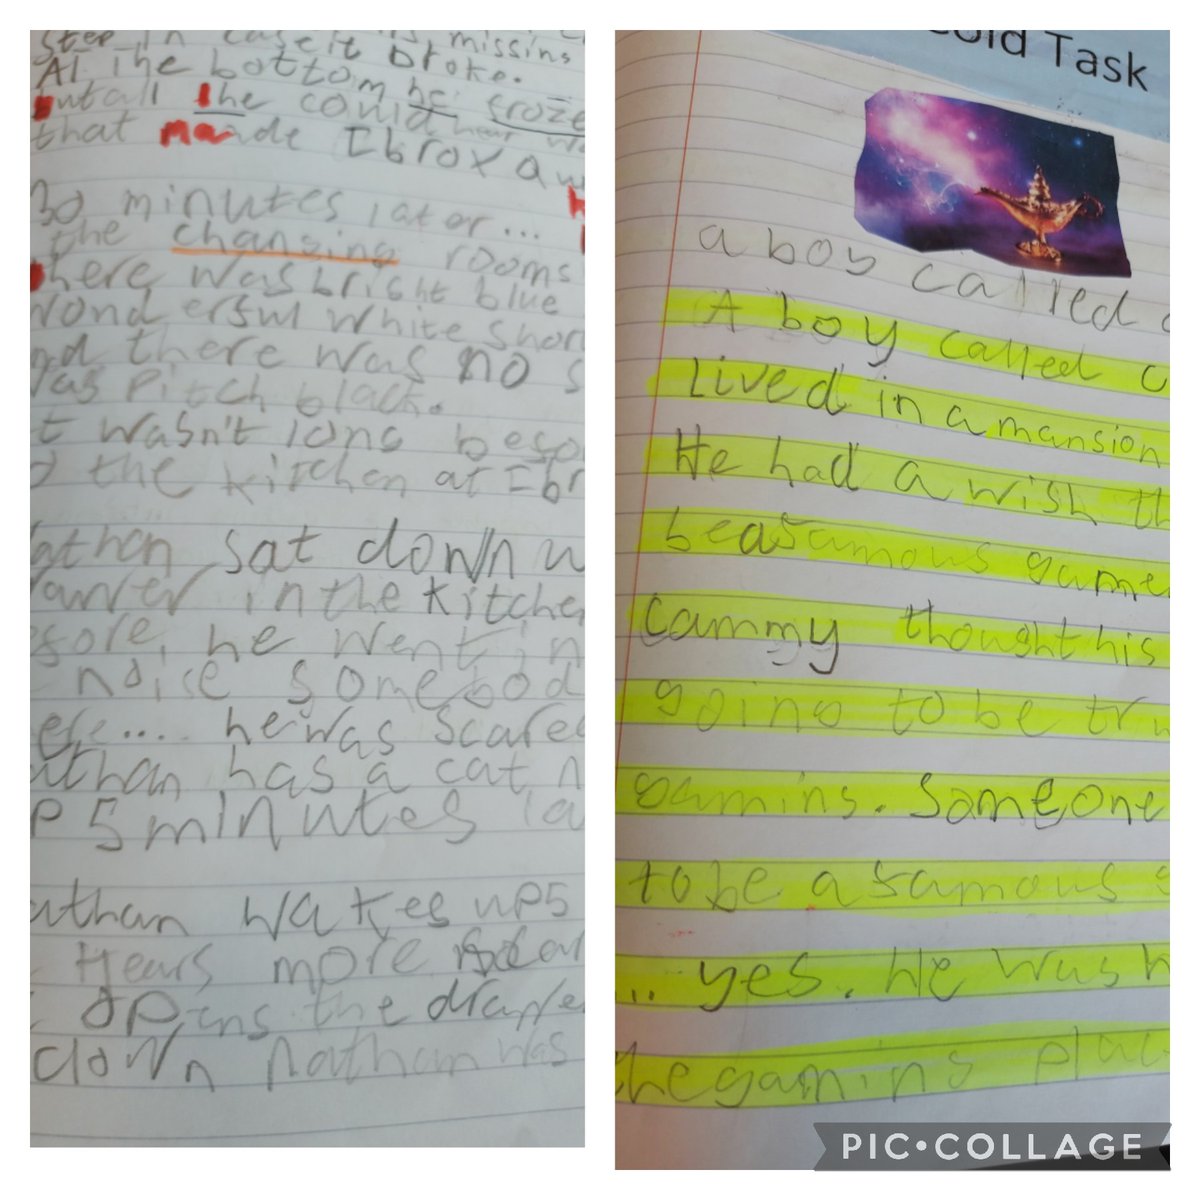 step in case it missing
broke.
At the bottom he froze
but all the could hear
that made Ibrox
30 minutes later...
the changing rooms
there was bright blue
wonderful white shor
nd there was no s
was pitch black.
t wasn't long befo
d the kitchen at Ibr
athan sat down w
in the kitche
efore, he went in
noise somebod
ere.... he was scared
athan has a cat n
P 5 minutes la
athan wakes up 5
Hears more
opens the drawe
down nathan was
Cold Task
a boy called
A boy called C
Lived in a mansion
He had a wish th
be a famous game
Cammy thought his
going to be tr
gaming. Someone
to be a famous g
... yes. He was h
the gaming plac
PIC•COLLAGE